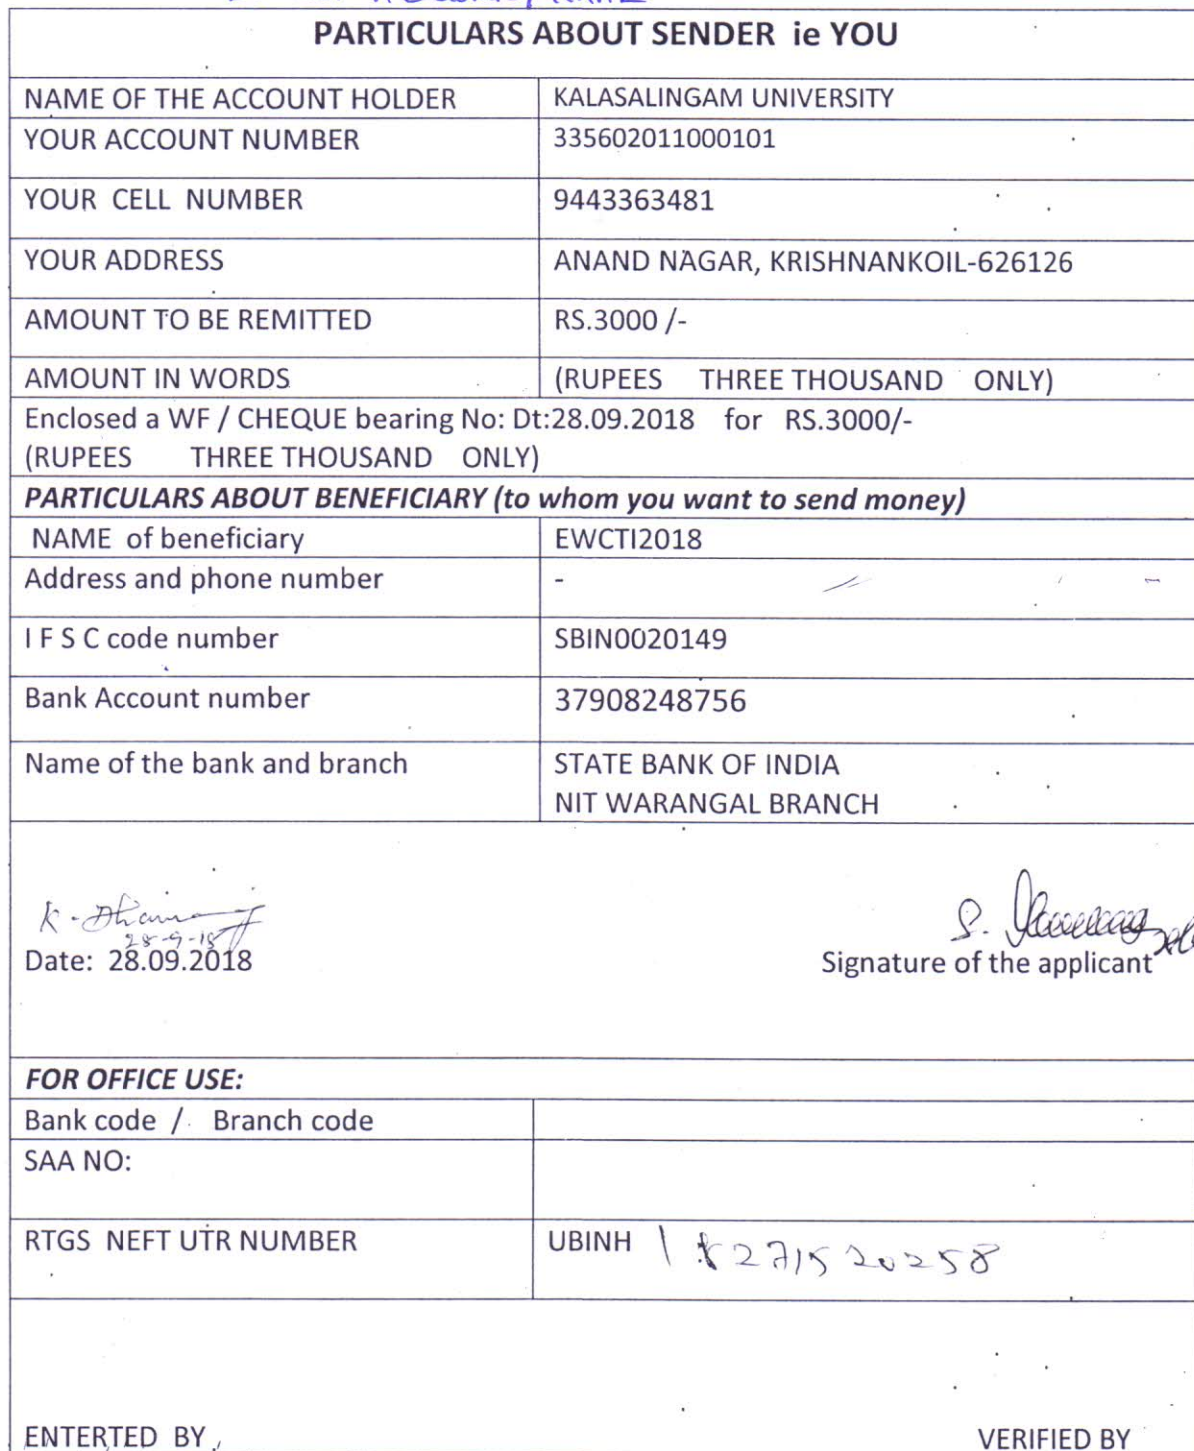 PARTICULARS ABOUT SENDER ie YOU
NAME OF THE ACCOUNT HOLDER KALASALINGAM UNIVERSITY
YOUR ACCOUNT NUMBER 335602011000101
YOUR CELL NUMBER 9443363481
YOUR ADDRESS ANAND NAGAR, KRISHNANKOIL-626126
AMOUNT TO BE REMITTED RS.3000 /-
AMOUNT IN WORDS (RUPEES THREE THOUSAND ONLY)
Enclosed a WF / CHEQUE bearing No: Dt:28.09.2018 for RS.3000/-
(RUPEES THREE THOUSAND ONLY)
PARTICULARS ABOUT BENEFICIARY (to whom you want to send money)
NAME of beneficiary EWCTI2018
Address and phone number -
I F S C code number SBIN0020149
Bank Account number 37908248756
Name of the bank and branch STATE BANK OF INDIA
NIT WARANGAL BRANCH
28-9-18
Date: 28.09.2018
Signature of the applicant
FOR OFFICE USE:
Bank code / Branch code
SAA NO:
RTGS NEFT UTR NUMBER UBINH
ENTERTED BY VERIFIED BY